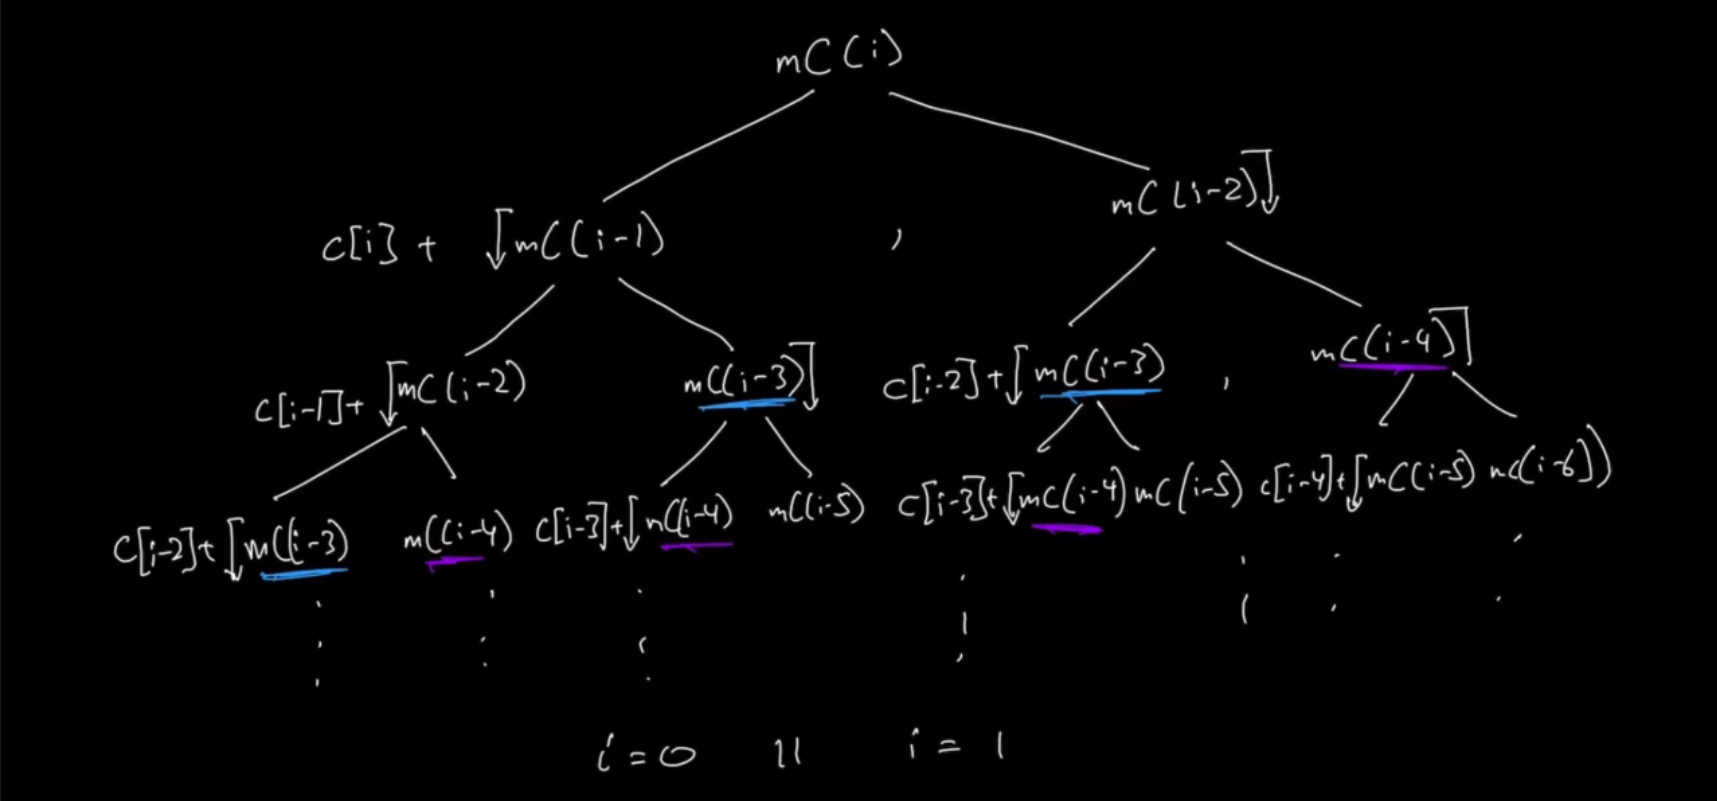 mC(i)
c[i] + ↓mC(i-1) , mC(i-2)↓
c[i-1]+ ↓mC(i-2) mC(i-3)↓ c[i-2]+↓mC(i-3) , mC(i-4)
c[i-2]+↓mC(i-3) mC(i-4) c[i-3]+↓mC(i-4) mC(i-5) c[i-3]+↓mC(i-4) mC(i-5) c[i-4]+↓mC(i-5) mC(i-6))
i=0 || i=1